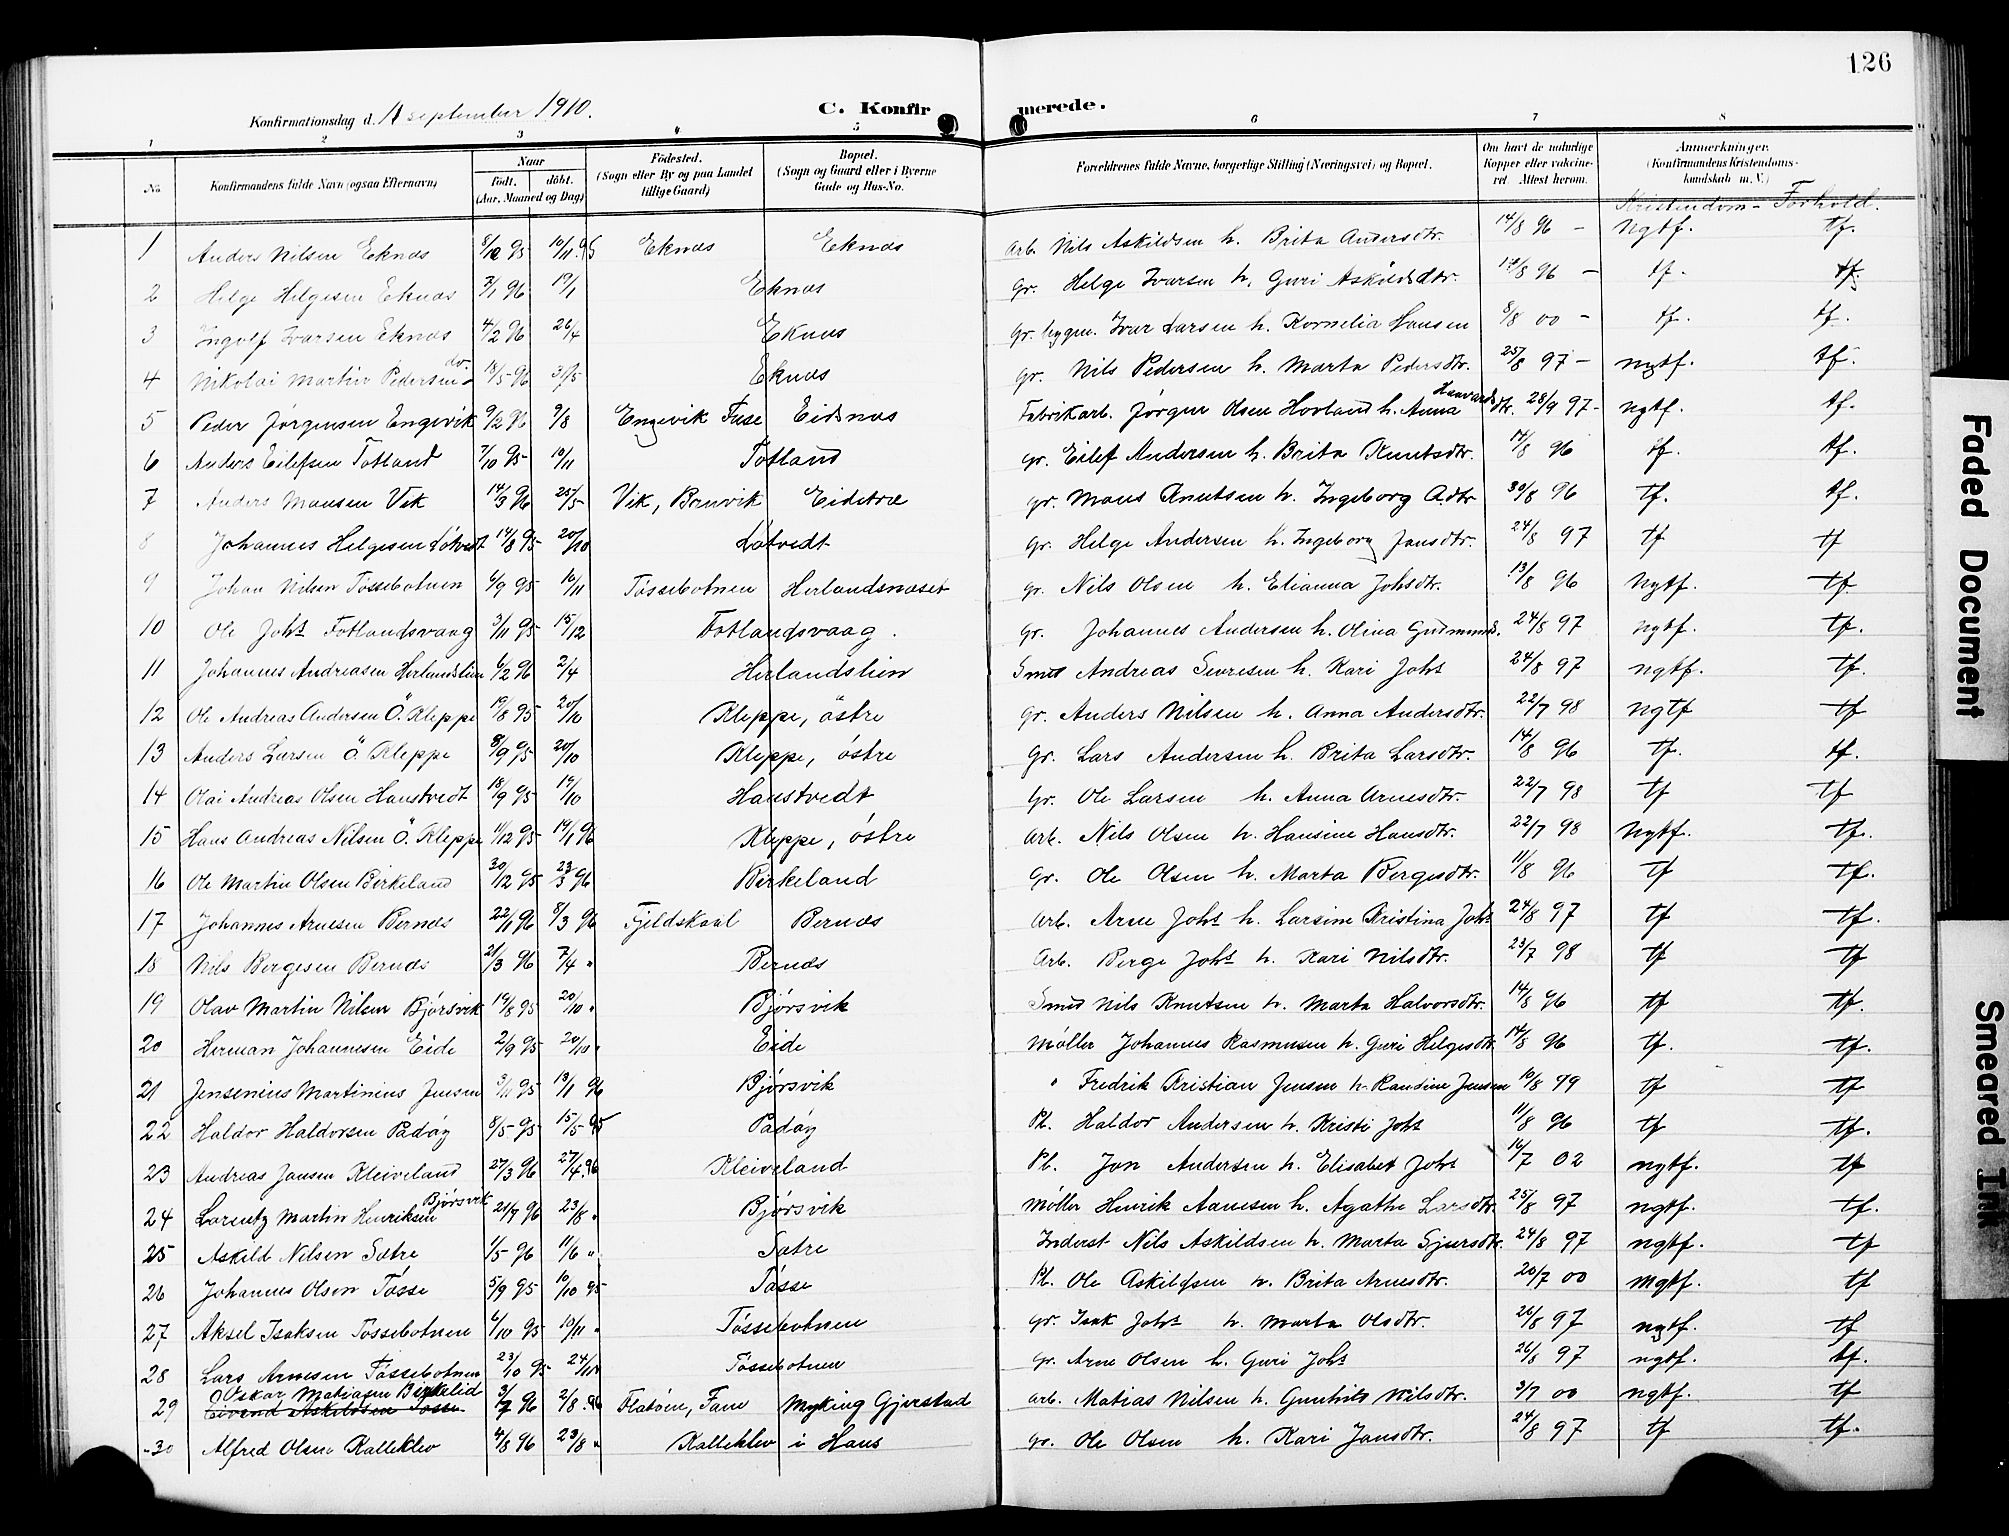 126
Konfirmationsdag d. 11 september 1910.
C. Konfirmerede.
1 2 3 4 5 6 7 8
No
Konfirmandens fulde Navn (ogsaa Efternavn)
Naar
født. døbt.
(Aar, Maaned og Dag)
Fødested.
(Sogn eller By og paa Landet
tillige Gaard)
Bopæl.
(Sogn og Gaard eller i Byerne
Gade og Hus-No.
Forældrenes fulde Navne, borgerlige Stilling (Næringsvei) og Bopæl.
Om havt de naturlige
Kopper eller vaccine-
ret. Attest herom.
Anmærkninger.
(Konfirmandens Kristendoms-
kundskab m. V.)
Kristendom - Forhold.
1 Anders Nilsen Eknæs 8/10 95 10/11 95 Eknæs Eknæs Arb. Nils Askildsen h. Brita Andersdtr. 14/8 96 - Ngtf. tf.
2 Helge Helgesen Eknæs 3/1 96 19/1 Eknæs Gr. Helge Ivarsen h. Guri Askildsdtr. 14/8 96 - tf. tf.
3 Ingolf Ivarsen Eknæs 4/2 96 26/4 Eknæs Gr. bygm. Ivar Larsen h. Kornelia Hansen 8/8 00 - tf. tf.
4 Nikolai Martin Pedersen do. 13/5 96 31/5 Eknæs Gr. Nils Pedersen h. Marta Pedersdtr. 25/8 97 - ngtf. tf.
5 Peder Jørgensen Engevik 9/2 96 9/8 Engevik Fuse Eidsnæs Fabrikarb. Jørgen Olsen Hovland h. Anna Haavardsdtr. 28/9 97 - ngtf. tf.
6 Anders Eilefsen Totland 7/10 95 10/11 Totland Gr. Eilef Andersen h. Brita Knutsdtr. 14/8 96 tf. tf.
7 Anders Monsen Vik 14/3 96 25/5 Vik, Bruvik Eidetræ Gr. Mons Knutsen h. Ingeborg Adtr. 30/8 96 tf. tf.
8 Johannes Helgesen Løtvedt 14/8 95 20/10 Løtvedt Gr. Helge Andersen h. Ingeborg Jansdtr. 24/8 97 tf tf
9 Johan Nilsen Tøssebotnen 6/9 95 10/11 Tøssebotnen Herlandsnæset gr. Nils Olsen h. Elianna Johsdtr. 13/8 96 Ngtf. tf.
10 Ole Johs Fotlandsvaag 3/11 95 15/12 Fotlandsvaag. Gr. Johannes Andersen h. Olina Gudmunds. 24/8 97 ngtf. tf.
11 Johannes Andreasen Herlandslien 6/2 96 2/4 Herlandslien Smed Andreas Seversen h. Kari Johs 24/8 97 ngtf. tf.
12 Ole Andreas Andersen Ö. Kleppe 19/8 95 20/10 Kleppe, østre Gr. Anders Nilsen h. Anna Andersdtr. 22/7 98 ngtf tf
13 Anders Larsen Ö. Kleppe 8/9 95 20/10 Kleppe, østre Gr. Lars Andersen h. Brita Larsdtr. 14/8 96 tf. tf.
14 Olai Andreas Olsen Haustvedt 18/9 95 19/10 Haustvedt Gr. Ole Larsen h. Anna Arnesdtr. 22/7 98 tf tf
15 Hans Andreas Nilsen Ö. Kleppe 11/12 95 19/1 96 Kleppe, østre Arb. Nils Olsen h. Hansine Hansdtr. 22/7 98 Ngtf. tf.
16 Ole Martin Olsen Birkeland 30/12 95 23/3 96 Birkeland Gr. Ole Olsen h. Marta Bergesdtr. 11/8 96 tf tf.
17 Johannes Arnesen Bernæs 22/1 96 8/3 96 Fjeldskaal Bernæs Arb. Arne Johs h. Larsine Kristina Johs 24/8 97 tf tf.
18 Nils Bergesen Bernæs 21/3 96 7/4 " Bernæs Arb. Berge Johs h. Kari Nilsdtr. 23/7 98 tf tf
19 Olav Martin Nilsen Bjørsvik 19/8 95 20/10 " Bjørsvik Smed Nils Knutsen h. Marta Halvorsdtr. 14/8 96 tf tf.
20 Herman Johannesen Eide 2/9 95 20/10 " Eide Møller Johannes Rasmussen h. Guri Helgesdtr. 14/8 96 tf. tf.
21 Jensenius Martinius Jensen 3/11 95 13/1 96 Bjørsvik " Fredrik Kristian Jensen h. Randine Jensen 10/8 99 tf tf
22 Haldor Haldorsen Padøy 8/5 95 15/5 95 Padøy Pl. Haldor Andersen h. Kristi Johs 11/8 96 tf tf.
23 Andreas Jansen Kleiveland 27/3 96 27/4 96 Kleiveland Pl. Jon Andersen h. Elisabet Johs 16/7 02 ngtf. tf
24 Lorentz Martin Henriksen Bjørsvik 21/7 96 23/8 " Bjørsvik Møller Henrik Aanesen h. Agathe Larsdtr. 25/8 97 ngtf. tf.
25 Askild Nilsen Sætre 1/5 96 11/6 " Sætre Inderst Nils Askildsen h. Marta Sjursdtr. 24/8 97 ngtf. tf
26 Johannes Olsen Tøsse 5/9 95 10/10 95 Tøsse Pl. Ole Askildsen h. Brita Arnesdtr. 20/7 00 Mgtf. tf
27 Aksel Isaksen Tøssebotnen 6/10 95 10/11 " Tøssebotnen gr. Isak Johs h. Marta Olsdtr. 26/8 97 ngtf. tf
28 Lars Arnesen Tøssebotnen 23/10 95 24/11 Tøssebotnen gr. Arne Olsen h. Guri Johs 26/8 97 ngtf. tf.
Oskar Matiasen Birkelid
29 Eivind Askildsen Tøsse 3/7 96 2/8 96 Flatøen, Fane Myking Gjerstad arb. Matias Nilsen h. Gunhild Nilsdtr. 3/7 00 ngtf. tf
30 Alfred Olsen Kalleklev 4/8 96 23/8 " Kalleklev i Haus gr. Ole Olsen h. Kari Jansdtr. 24/8 97 tf tf.
Faded Document
Smeared Ink